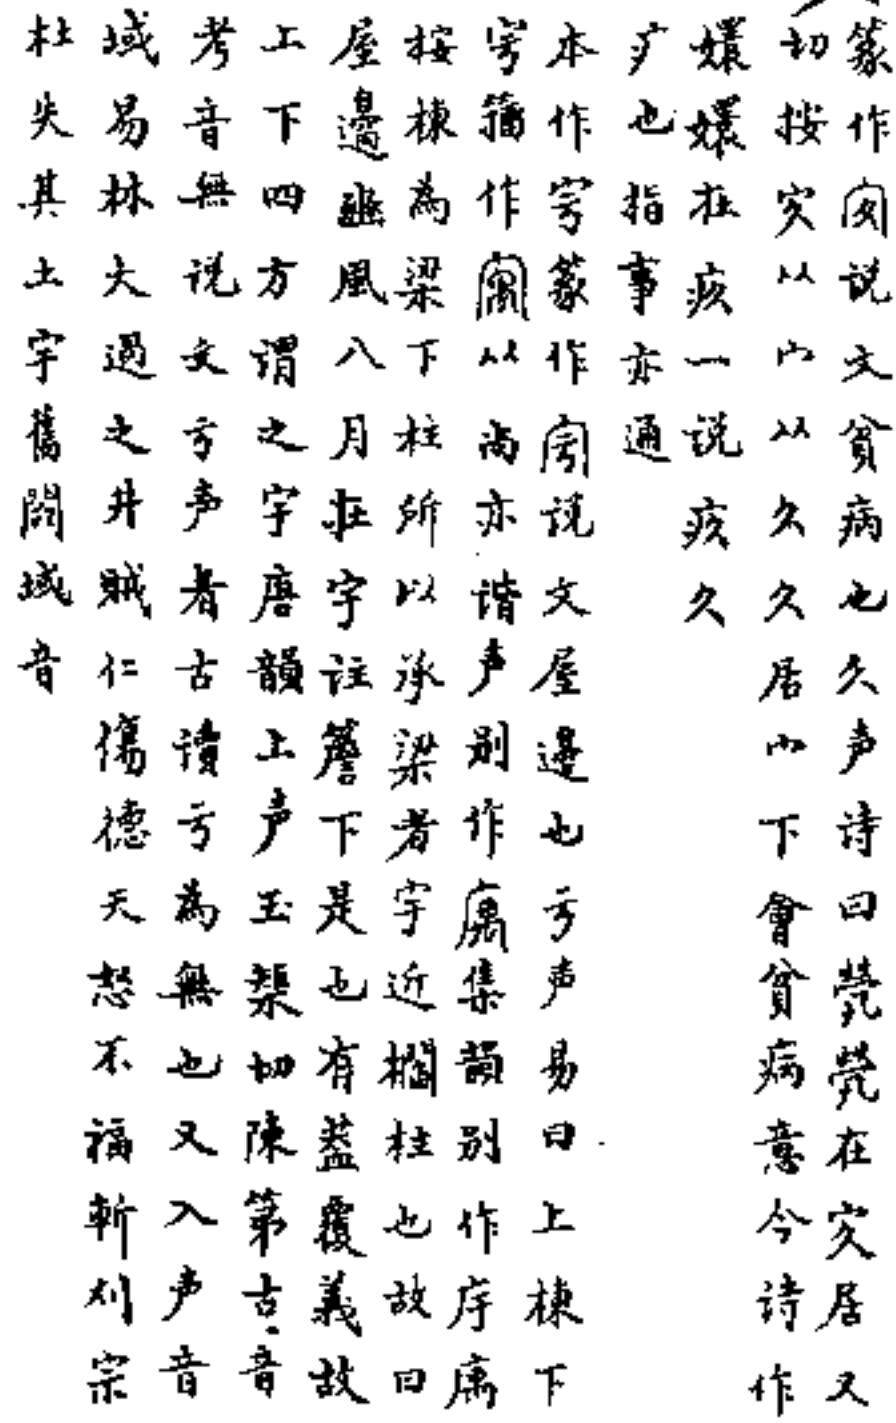 篆作㝌说文貧病也久声诗曰煢煢在㝌居又
切按㝌以宀从久久居宀下會貧病意今诗作
嬛嬛在疚一说疚久
疒也指事亦通
本作㝍篆作㝍说文屋邊也亏声易曰上棟下
㝍籀作㝢以禹亦谐声别作庽集韻别作序庽
按棟為梁下柱所以承梁者宇近櫩柱也故曰
屋邊豳風八月在宇註簷下是也有蓋覆義故
上下四方谓之宇唐韻上声玉榘切陳第古音
考音無说文亏声者古读亏為無也又入声音
域易林大過之井贼仁傷德天怒不福斬刈宗
杜失其土宇舊域音